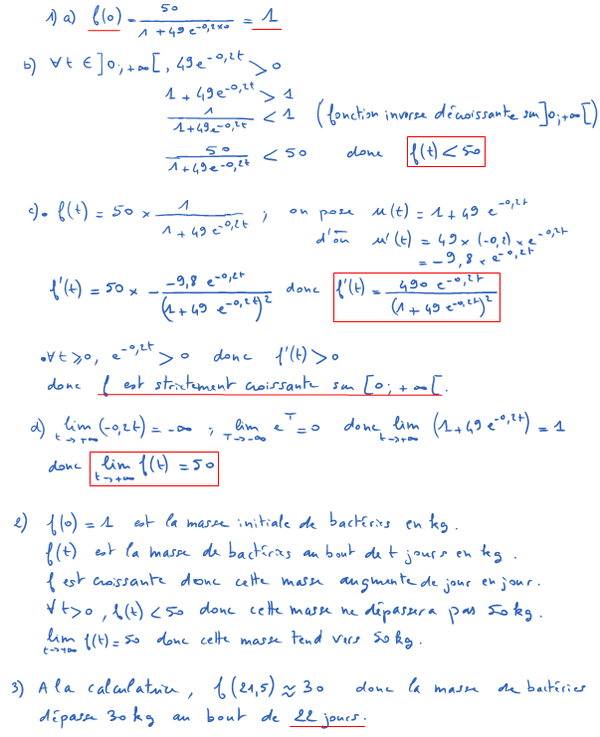 1) a) f(0) = 50 / (1 + 49 e^(-0,2×0)) = 1
b) ∀ t ∈ ]0; +∞[, 49 e^(-0,2t) > 0
1 + 49 e^(-0,2t) > 1
1 / (1 + 49 e^(-0,2t)) < 1 (fonction inverse décroissante sur ]0; +∞[)
50 / (1 + 49 e^(-0,2t)) < 50 donc f(t) < 50
c) • f(t) = 50 × 1 / (1 + 49 e^(-0,2t)) ; on pose u(t) = 1 + 49 e^(-0,2t)
d'où u'(t) = 49 × (-0,2) × e^(-0,2t)
= -9,8 × e^(-0,2t)
f'(t) = 50 × - (-9,8 e^(-0,2t)) / (1 + 49 e^(-0,2t))² donc f'(t) = 490 e^(-0,2t) / (1 + 49 e^(-0,2t))²
• ∀ t ⩾ 0, e^(-0,2t) > 0 donc f'(t) > 0
donc f est strictement croissante sur [0; +∞[.
d) lim t→+∞ (-0,2t) = -∞ ; lim T→-∞ e^T = 0 donc lim t→+∞ (1 + 49 e^(-0,2t)) = 1
donc lim t→+∞ f(t) = 50
2) f(0) = 1 est la masse initiale de bactéries en kg.
f(t) est la masse de bactéries au bout de t jours en kg.
f est croissante donc cette masse augmente de jour en jour.
∀ t > 0, f(t) < 50 donc cette masse ne dépassera pas 50 kg.
lim t→+∞ f(t) = 50 donc cette masse tend vers 50 kg.
3) A la calculatrice, f(21,5) ≈ 30 donc la masse de bactéries
dépasse 30 kg au bout de 22 jours.